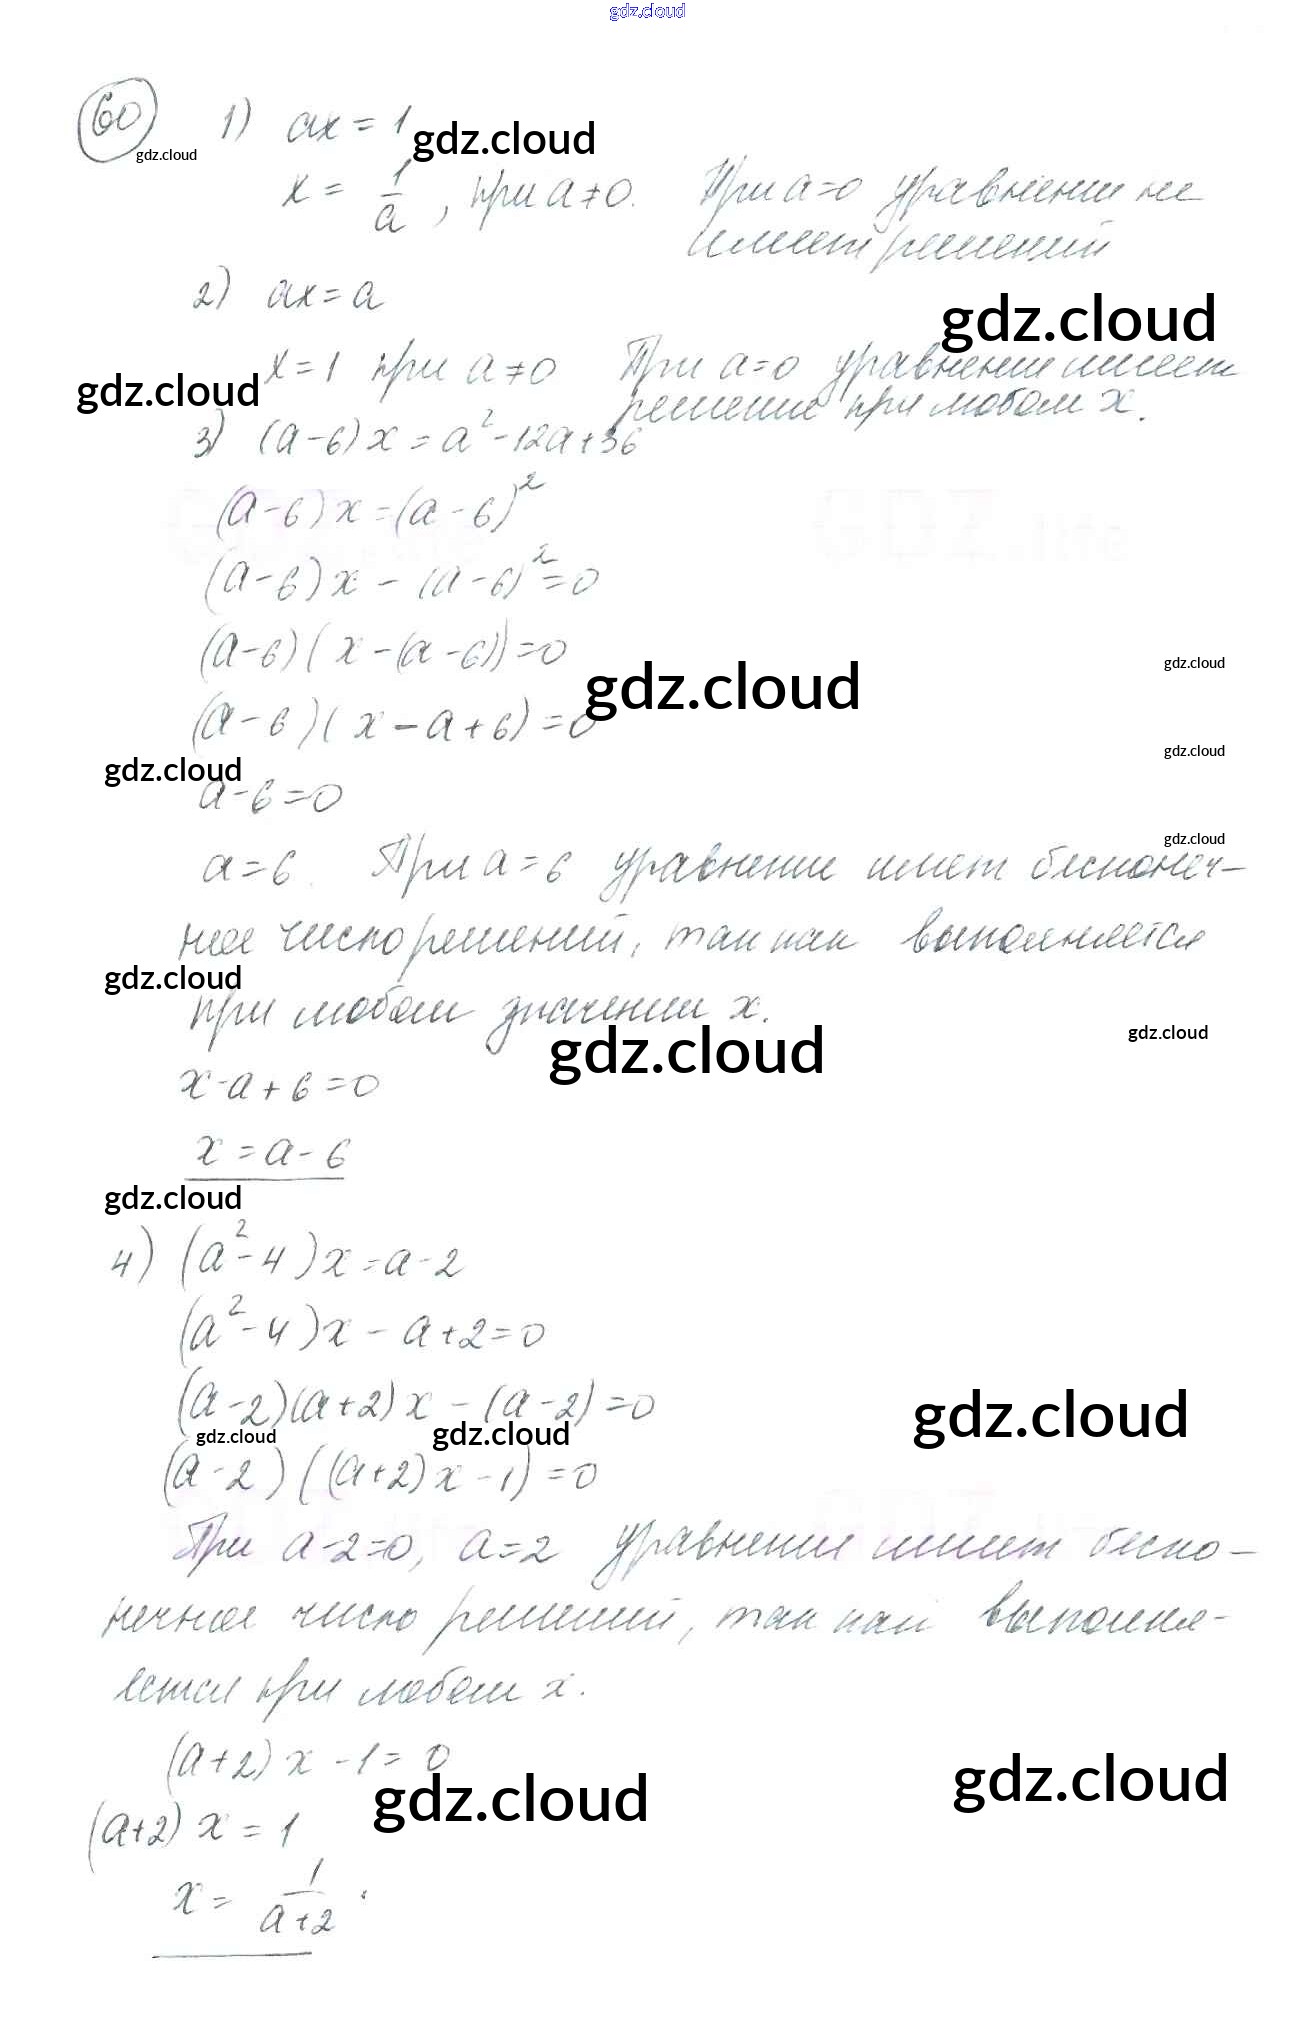 gdz.cloud
60 1) ax = 1 gdz.cloud
gdz.cloud
x = 1/a, при a ≠ 0. При a=0 уравнение не
имеет решений
2) ax = a
gdz.cloud
x = 1 при a ≠ 0 При a=0 уравнение имеет
gdz.cloud
решение при любом x.
3) (a-6)x = a²-12a+36
(a-6)x = (a-6)²
(a-6)x - (a-6)² = 0
(a-6)(x-(a-6)) = 0
gdz.cloud
gdz.cloud
(a-6)(x-a+6) = 0
gdz.cloud
gdz.cloud
a-6=0
gdz.cloud
a=6. При a=6 уравнение имеет бесконеч-
ное число решений, так как выполняется
gdz.cloud
при любом значении x.
gdz.cloud
gdz.cloud
x-a+6=0
x = a-6
gdz.cloud
4) (a²-4)x = a-2
(a²-4)x - a+2=0
(a-2)(a+2)x - (a-2) = 0
gdz.cloud
gdz.cloud
gdz.cloud
(a-2)((a+2)x-1) = 0
При a-2=0, a=2 уравнение имеет беско-
нечное число решений, так как выполня-
ется при любом x.
(a+2)x - 1 = 0
gdz.cloud
gdz.cloud
(a+2)x = 1
x = 1/(a+2).